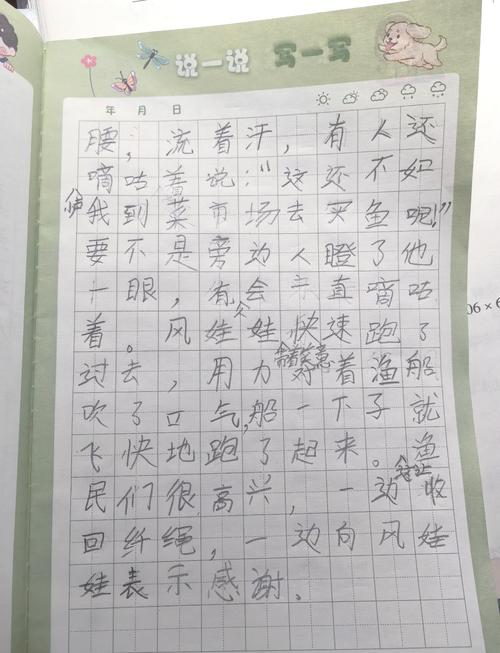 说一说 写一写
年 月 日
腰，流着汗，有人还
嘀咕着说："这还不如
我到菜市场去买鱼呢！"
要不是旁边人瞪了他
一眼，他会一直嘀咕
着。风娃娃快速跑了
过去，用力对着渔船
吹了口气，船一下子就
飞快地跑了起来。渔
民们很高兴，一边收
回纤绳，一边向风娃
娃表示感谢。
06×6